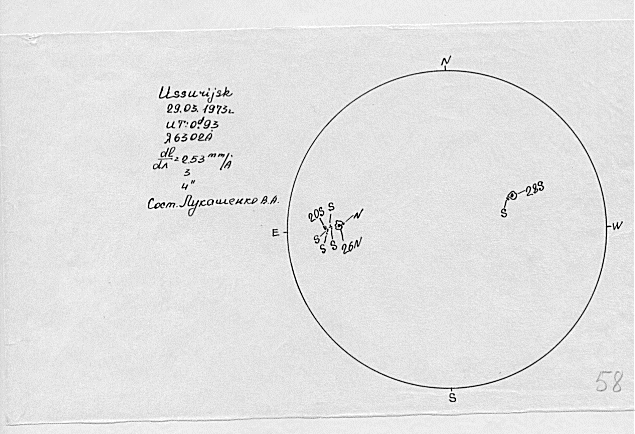 Ussurijsk
29.03.1973г.
UT: 0ᵈ.93
λ6302Å
dl/dλ = 2.53 mm/Å
3
4"
Сост. Лукашенко В.А.
N
E
W
S
20S
S
N
S
S
S
26N
28S
S
58